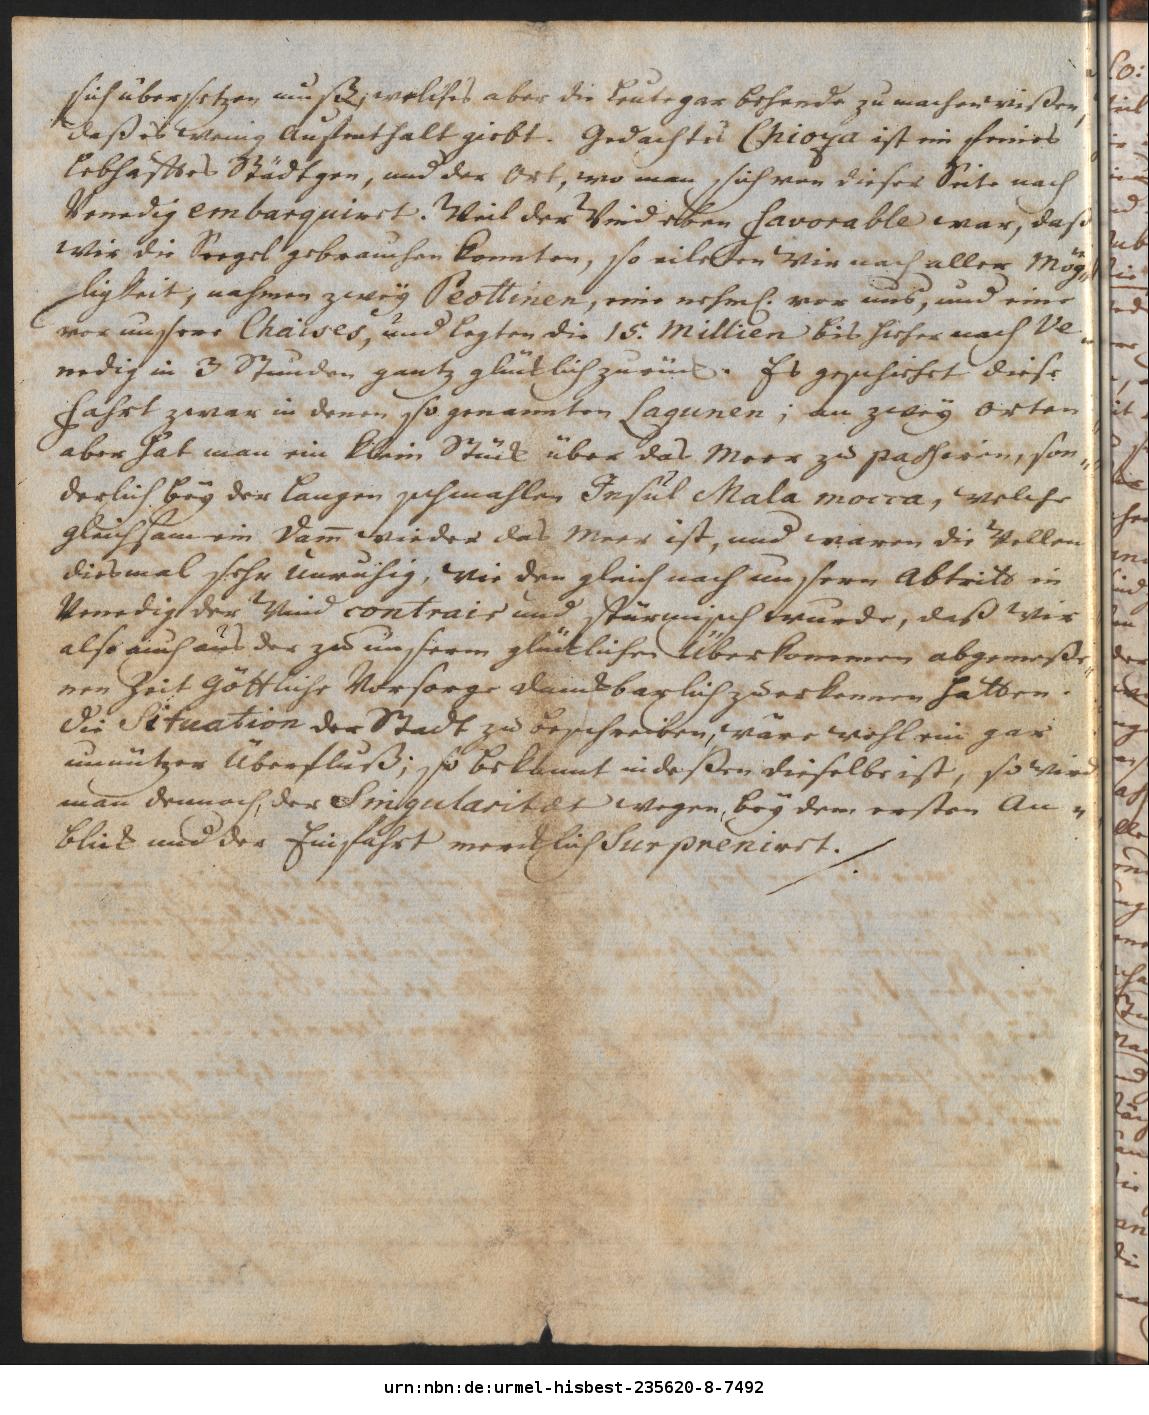 sich übersetzen muß, welches aber die Leute gar behende zu machen wißen,
daß es wenig Auffenthalt giebt. Gedachtes Chioza ist ein feines
lebhafftes Städtgen, und der Ort, wo man sich von dieser Seite nach
Venedig embarquiret. Weil der Wind eben favorable war, daß
wir die Seegel gebrauchen konnten, so eileten wir nach aller Mög„
ligkeit, nahmen zwey Peottinen, eine nehml. vor uns, und eine
vor unsere Chaises, und legten die 15. Millien bis hieher nach Ve„
nedig in 3 Stunden gantz glücklich zurück. Es geschiehet diese
Fahrt zwar in denen so genannten Lagunen; an zwey Orten
aber hat man ein klein Stück über das Meer zu passiren, son„
derlich bey der langen schmahlen Insul Mala mocca, welche
gleichsam ein Dam̅ wieder das Meer ist, und waren die Wellen
diesmal sehr unruhig, wie den gleich nach unserm Abtritt in
Venedig der Wind contrair und stürmisch wurde, daß wir
also auch aus der zu unserm glücklichen Überkommen abgemeße„
nen Zeit Göttliche Vorsorge danckbarlich zu erkennen hatten.
Die Situation der Stadt zu beschreiben, wäre wohl ein gar
unnützer Überfluß; so bekannt indeßen dieselbe ist, so wird
man dennoch, der Singularitæt wegen, bey dem ersten An„
blick und der Einfahrt mercklich surpreniret. /.
urn:nbn:de:urmel-hisbest-235620-8-7492